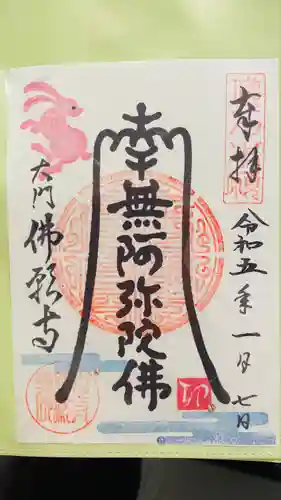 奉拝
令和五年一月七日
南無阿弥陀佛
大門 佛願寺